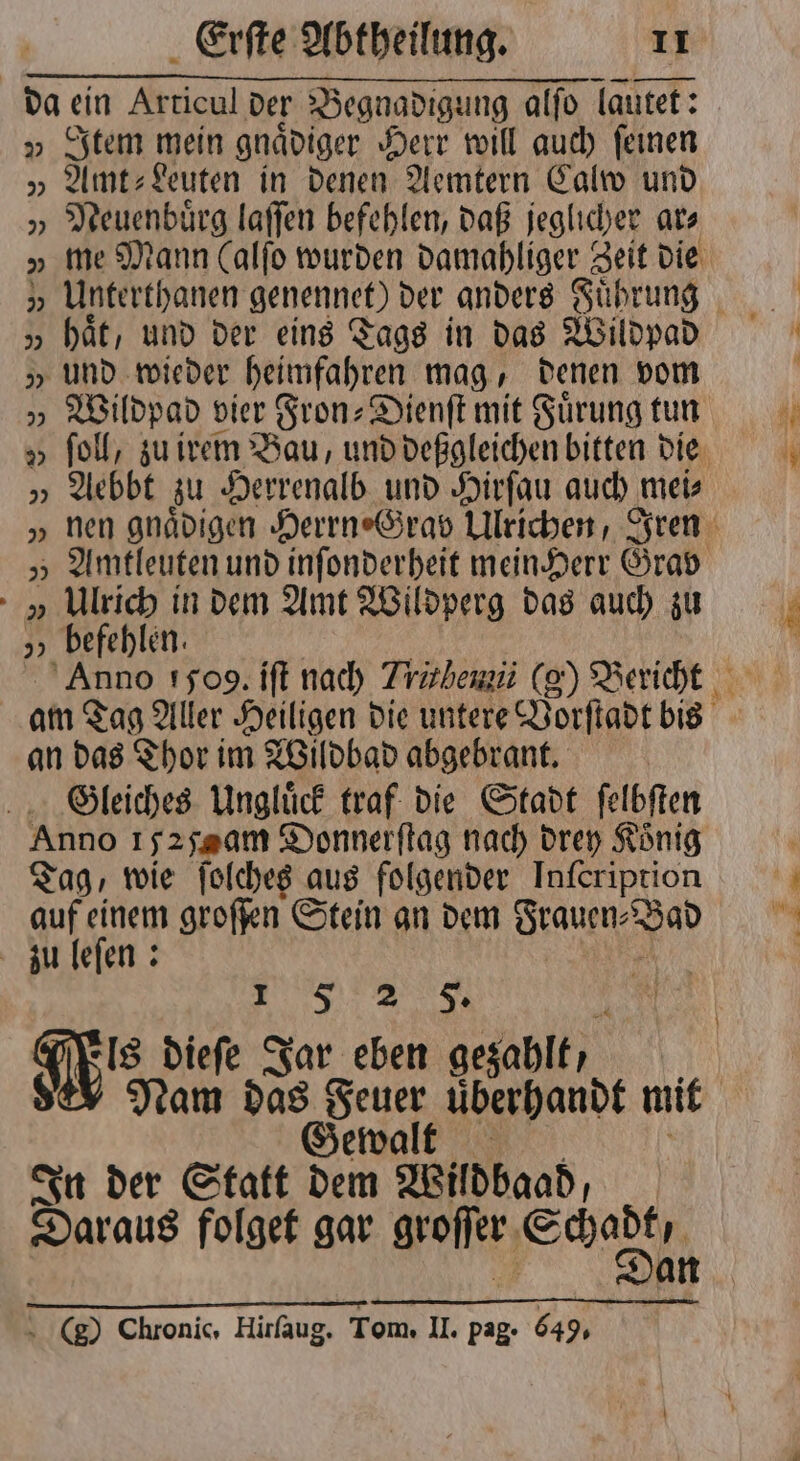 Erſte Abtheilung. 11
da ein Articul der Begnadigung alſo lautet:
„ Item mein gnaͤdiger Herr will auch ſeinen
„ Amt⸗Leuten in denen Aemtern Calw und
„ Neuenbuͤrg laſſen befehlen, daß jeglicher ar⸗
„ me Mann (alſo wurden damahliger Zeit die
„ Unterthanen genennet) der anders Fuͤhrung
„ haͤt, und der eins Tags in das Wildpad
„ und wieder heimfahren mag, denen vom
„ Wildpad vier Fron⸗Dienſt mit Fuͤrung tun
„ ſoll, zu irem Bau, und deßgleichen bitten die
„ Aebbt zu Herrenalb und Hirſau auch mei⸗
„ nen gnaͤdigen Herrn⸗Grav Ulrichen, Iren
„ Amtleuten und inſonderheit mein Herr Grav
„ Ulrich in dem Amt Wildperg das auch zu
„ befehlen.
Anno 1509. iſt nach Trithemii (g) Bericht
am Tag Aller Heiligen die untere Vorſtadt bis
an das Thor im Wildbad abgebrant.
Gleiches Ungluͤck traf die Stadt ſelbſten
Anno 1525. am Donnerſtag nach drey Koͤnig
Tag, wie ſolches aus folgender Inſcription
auf einem groſſen Stein an dem Frauen⸗Bad
zu leſen:
1 5 2 5.
Als dieſe Jar eben gezahlt,
Nam das Feuer uͤberhandt mit
Gewalt
In der Statt dem Wildbaad,
Daraus folget gar groſſer Schadt,
Dan
(g) Chronic. Hirſaug. Tom. II. pag. 649.